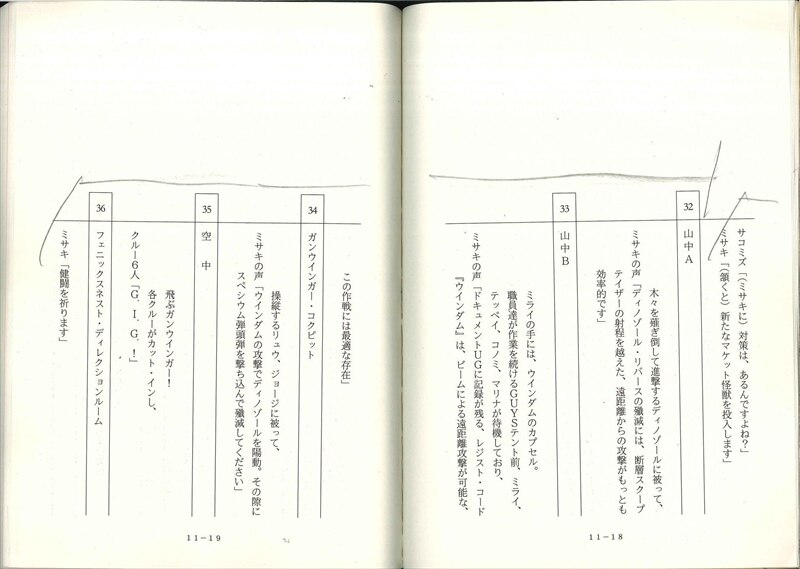 サコミズ「(ミサキに)対策は、あるんですよね?」
ミサキ「(頷くと)新たなマケット怪獣を投入します」
32
山中A
木々を薙ぎ倒して進撃するディノゾールに被って、
ミサキの声「ディノゾール・リバースの殲滅には、断層スクープ
テイザーの射程を越えた、遠距離からの攻撃がもっとも
効率的です」
33
山中B
ミライの手には、ウインダムのカプセル。
職員達が作業を続けるGUYSテント前、ミライ、
テッペイ、コノミ、マリナが待機しており、
ミサキの声「ドキュメントUGに記録が残る、レジスト・コード
『ウインダム』は、ビームによる遠距離攻撃が可能な、
11-18
この作戦には最適な存在」
34
ガンウインガー・コクピット
操縦するリュウ、ジョージに被って、
ミサキの声「ウインダムの攻撃でディノゾールを陽動。その隙に
スペシウム弾頭弾を撃ち込んで殲滅してください」
35
空 中
飛ぶガンウインガー!
各クルーがカット・インし、
クルー6人「G.I.G.!」
36
フェニックスネスト・ディレクションルーム
ミサキ「健闘を祈ります」
11-19